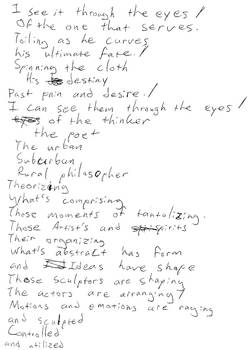 I see it through the eyes/
Of the one that serves.
Toiling as he curves
his ultimate fate./
Spinning the cloth
His destiny
Past pain and desire./
I can see them through the eyes/
of the thinker
the poet
The urban
Suburban
Rural philosopher
Theorizing
What's comprising
Those moments of tantalizing.
Those Artist's and spirits
Their organizing
What's abstract has form
and Ideas have shape
Those sculptors are shaping
The actors are arranging/
Motions and emotions are raging
and sculpted
Controlled
and utilized